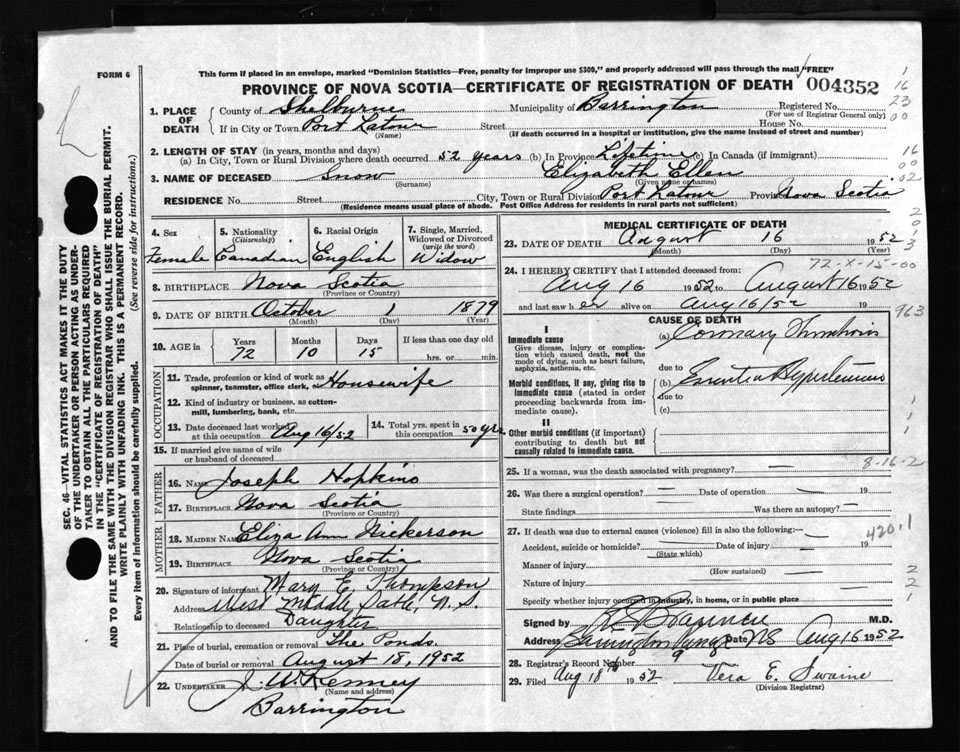 FORM 6
This form if placed in an envelope, marked "Dominion Statistics—Free, penalty for improper use $300," and properly addressed will pass through the mail "FREE"
PROVINCE OF NOVA SCOTIA—CERTIFICATE OF REGISTRATION OF DEATH 004352
1. PLACE OF DEATH County of Shelburne Municipality of Barrington Registered No.
(For use of Registrar General only)
If in City or Town Port Latour Street House No.
(Name) (If death occurred in a hospital or institution, give the name instead of street and number)
2. LENGTH OF STAY (in years, months and days)
(a) In City, Town or Rural Division where death occurred 52 years (b) In Province Lifetime (c) In Canada (if immigrant)
3. NAME OF DECEASED Snow Elizabeth Ellen
(Surname) (Given name or names)
RESIDENCE No. Street City, Town or Rural Division Port Latour Province Nova Scotia
(Residence means usual place of abode. Post Office Address for residents in rural parts not sufficient)
4. Sex 5. Nationality (Citizenship) 6. Racial Origin 7. Single, Married, Widowed or Divorced (write the word)
Female Canadian English Widow
8. BIRTHPLACE Nova Scotia
(Province or Country)
9. DATE OF BIRTH October 1 1879
(Month) (Day) (Year)
10. AGE in Years Months Days If less than one day old
72 10 15 hrs. or min.
OCCUPATION
11. Trade, profession or kind of work as spinner, teamster, office clerk, etc. Housewife
12. Kind of industry or business, as cotton-mill, lumbering, bank, etc.
13. Date deceased last worked at this occupation Aug 16/52
14. Total yrs. spent in this occupation 50 yrs
15. If married give name of wife or husband of deceased
FATHER
16. NAME Joseph Hopkins
17. BIRTHPLACE Nova Scotia
(Province or Country)
MOTHER
18. MAIDEN NAME Eliza Ann Nickerson
19. BIRTHPLACE Nova Scotia
(Province or Country)
20. Signature of informant Mary E. Thompson
Address West Middle Sable, N.S.
Relationship to deceased Daughter
21. Place of burial, cremation or removal The Ponds.
Date of burial or removal August 18, 1952
22. UNDERTAKER J. W. Kenney
(Name and address)
Barrington
MEDICAL CERTIFICATE OF DEATH
23. DATE OF DEATH August 16 1952
(Month) (Day) (Year)
72-X-15-00
24. I HEREBY CERTIFY that I attended deceased from:
Aug 16 1952 to August 16 1952
and last saw her alive on Aug 16/52 19
963
CAUSE OF DEATH
I
Immediate cause
Give disease, injury or complication which caused death, not the mode of dying, such as heart failure, asphyxia, asthenia, etc.
(a) Coronary Thrombosis
due to
Morbid conditions, if any, giving rise to immediate cause (stated in order proceeding backwards from immediate cause).
(b) Essential Hypertension
due to
(c)
II
Other morbid conditions (if important) contributing to death but not causally related to immediate cause.
8-16-2
25. If a woman, was the death associated with pregnancy? —
26. Was there a surgical operation? — Date of operation — 19
State findings Was there an autopsy? —
27. If death was due to external causes (violence) fill in also the following:—
420.1
Accident, suicide or homicide? Date of injury 19
(State which)
Manner of injury
(How sustained)
Nature of injury
Specify whether injury occurred in industry, in home, or in public place
Signed by M.D.
Address Barrington Passage NS Date Aug 16 1952
28. Registrar's Record Number 9
29. Filed Aug 18th 1952 Vera E. Swaine
(Division Registrar)
SEC. 46—VITAL STATISTICS ACT MAKES IT THE DUTY
OF THE UNDERTAKER OR PERSON ACTING AS UNDER-
TAKER TO OBTAIN ALL THE PARTICULARS REQUIRED
IN THE "CERTIFICATE OF REGISTRATION OF DEATH"
AND TO FILE THE SAME WITH THE DIVISION REGISTRAR WHO SHALL ISSUE THE BURIAL PERMIT.
WRITE PLAINLY WITH UNFADING INK. THIS IS A PERMANENT RECORD.
Every item of information should be carefully supplied. (See reverse side for instructions.)